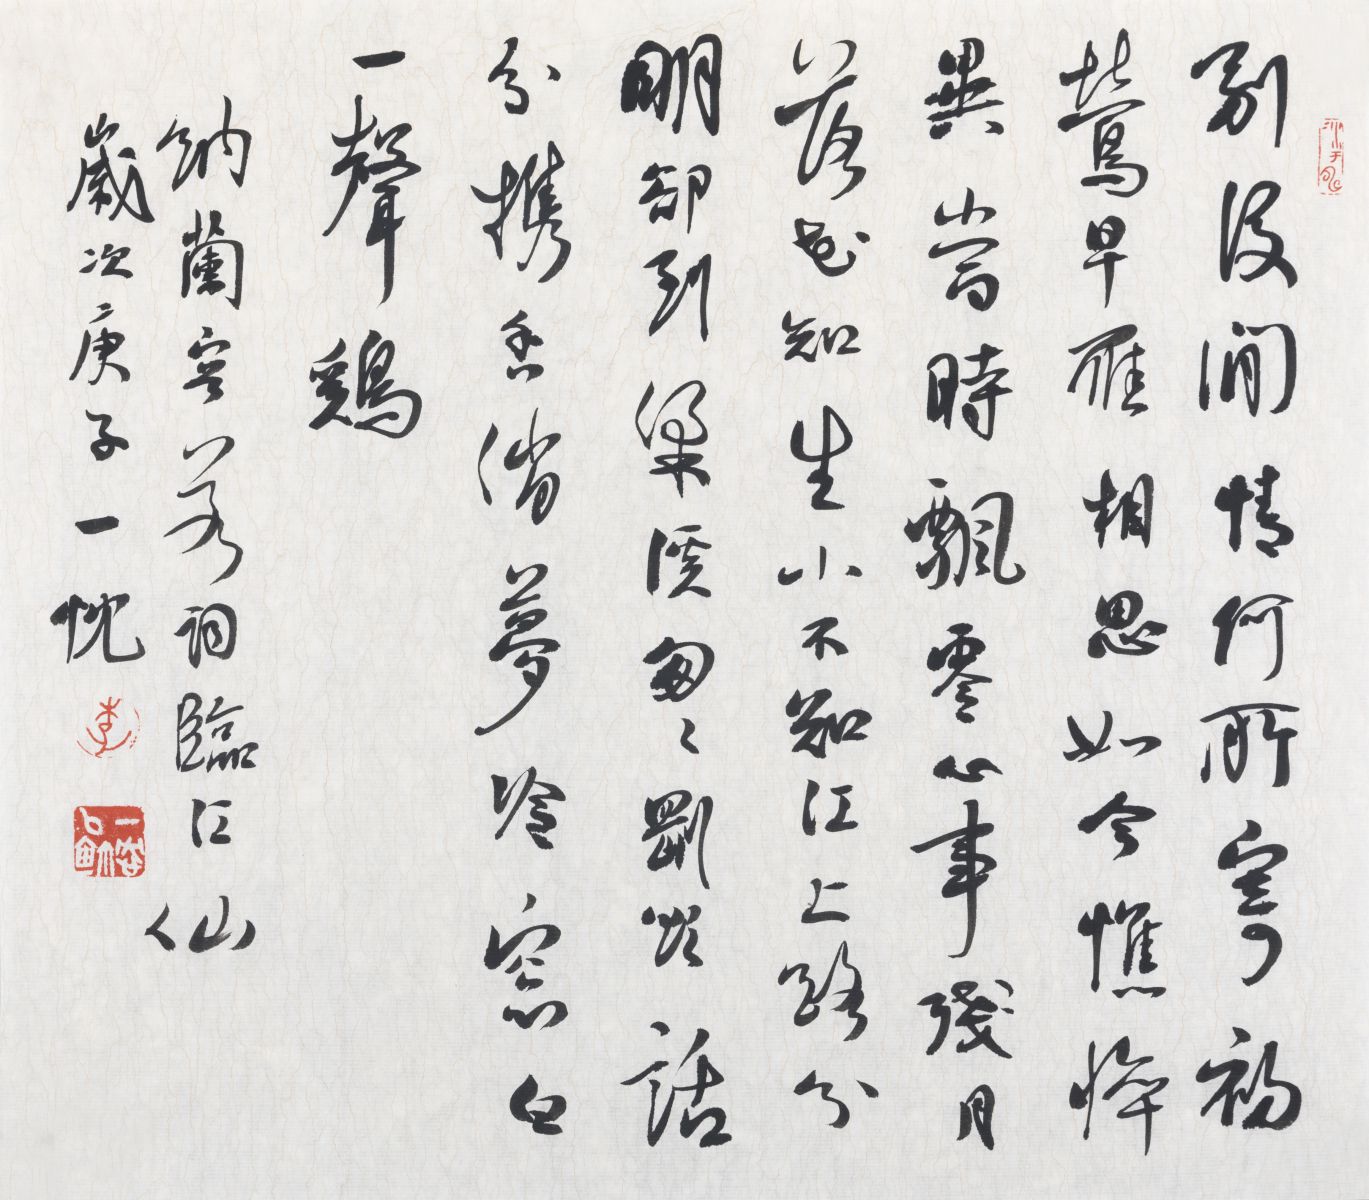 別後閒情何所寄初
鶯早雁相思如今憔悴
異當時飄零心事殘月
落花知生小不知江上路分
明卻到梁溪匆々剛欲話
分攜香消夢冷窓白
一聲鷄
納蘭容若詞臨江仙
歲次庚子一忱
李